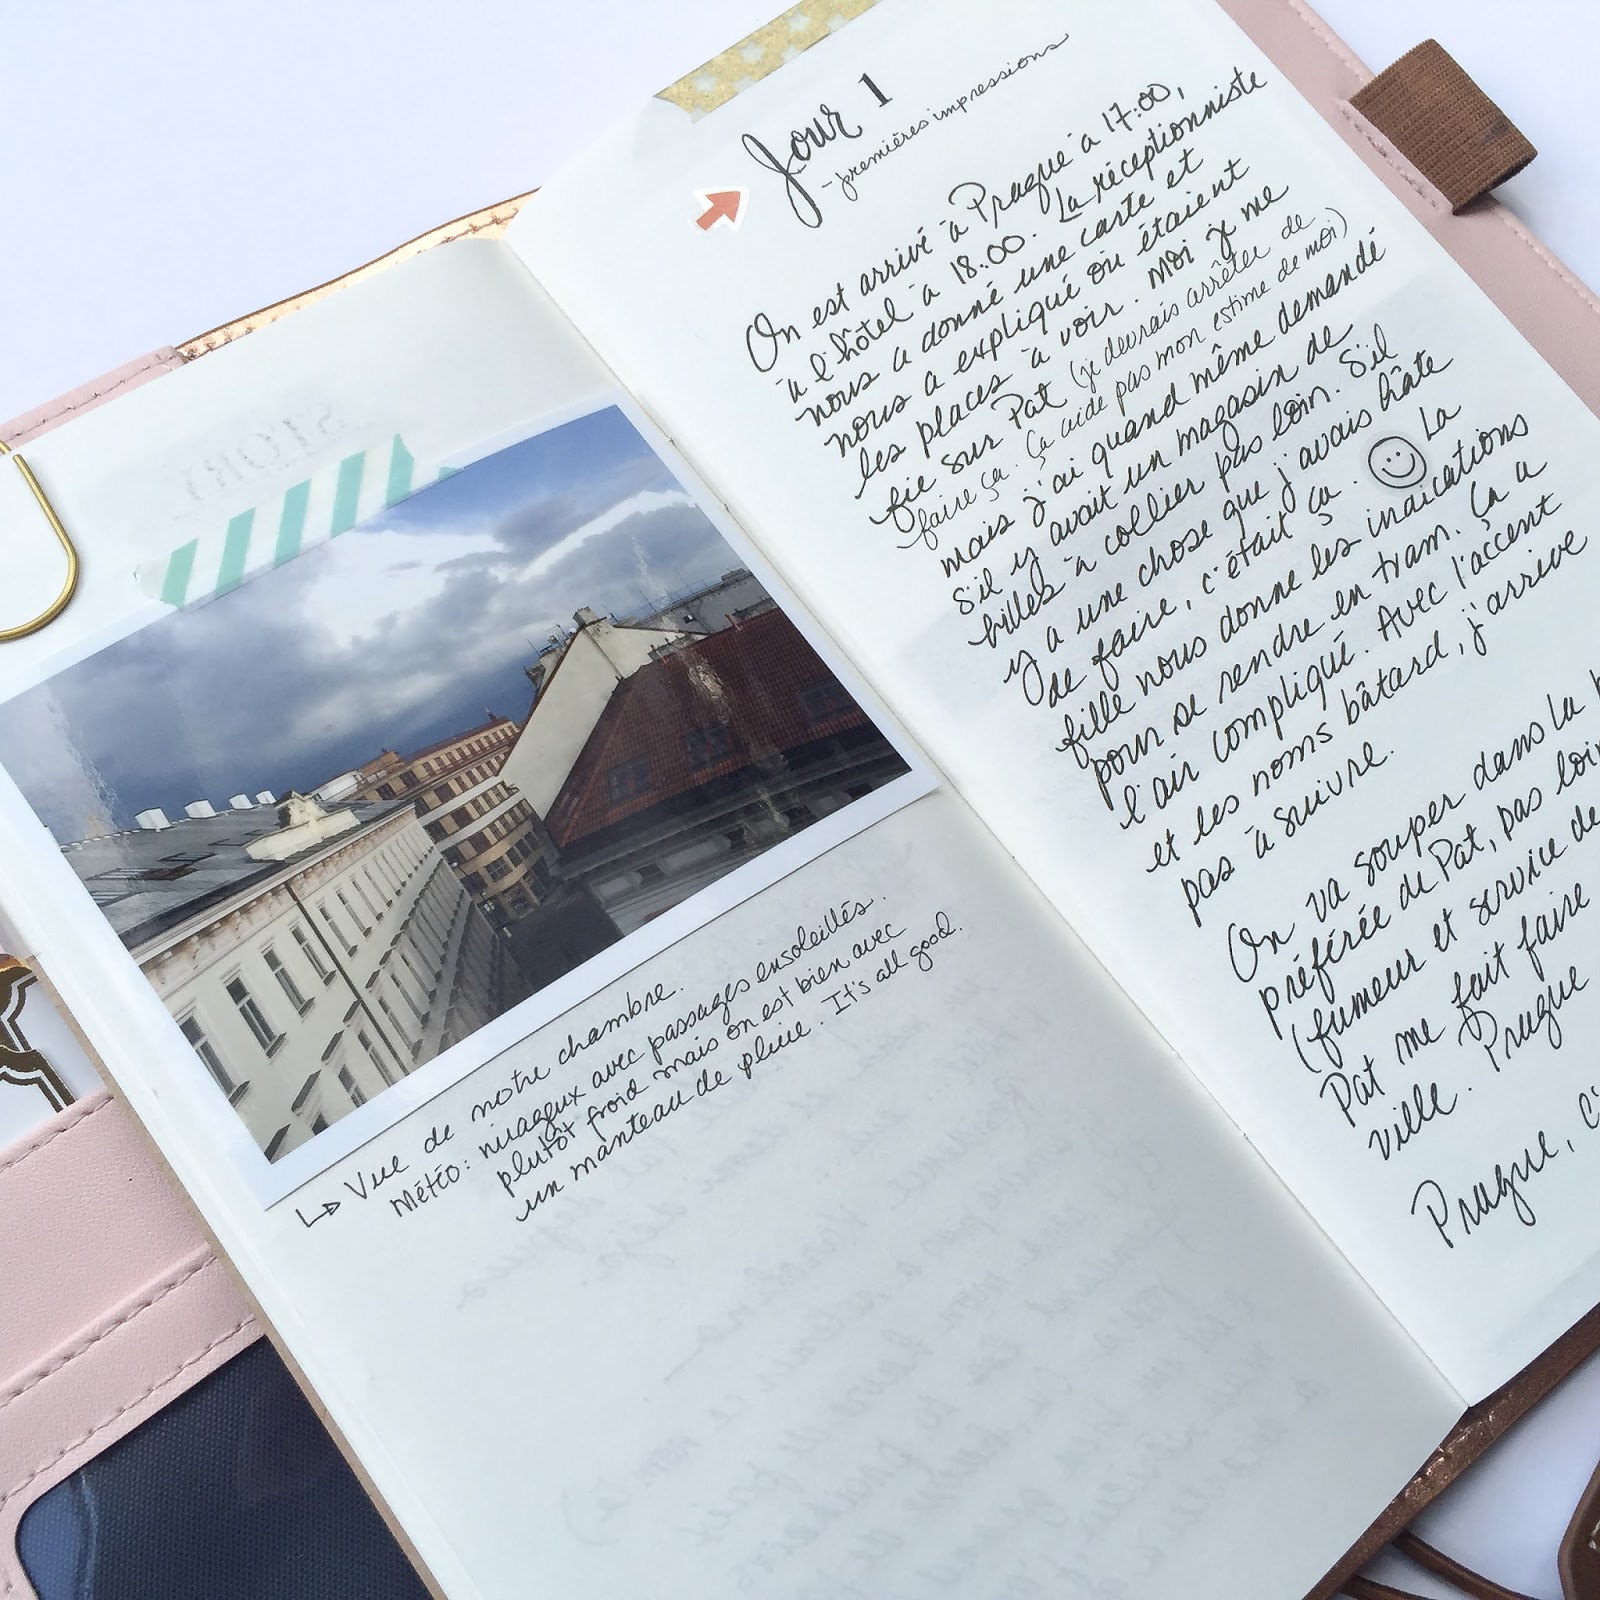 Vue de notre chambre.
Météo: nuageux avec passages ensoleillés.
plutôt froid mais on est bien avec
un manteau de pluie. It's all good.
Jour 1
- premières impressions
On est arrivé à Prague à 17:00,
à l'hôtel à 18:00. La réceptionniste
nous a donné une carte et
nous a expliqué où étaient
les places à voir. Moi je me
fie sur Pat (je devrais arrêter de
faire ça. Ça aide pas mon estime de moi)
mais j'ai quand même demandé
s'il y avait un magasin de
billes à collier pas loin. S'il
y a une chose que j'avais hâte
de faire, c'était ça. La
fille nous donne les indications
pour se rendre en tram. Ça a
l'air compliqué. Avec l'accent
et les noms bâtard, j'arrive
pas à suivre.
On va souper dans la
préférée de Pat, pas loin
(fumeur et service de
Pat me fait faire
ville. Prague
Prague, c'